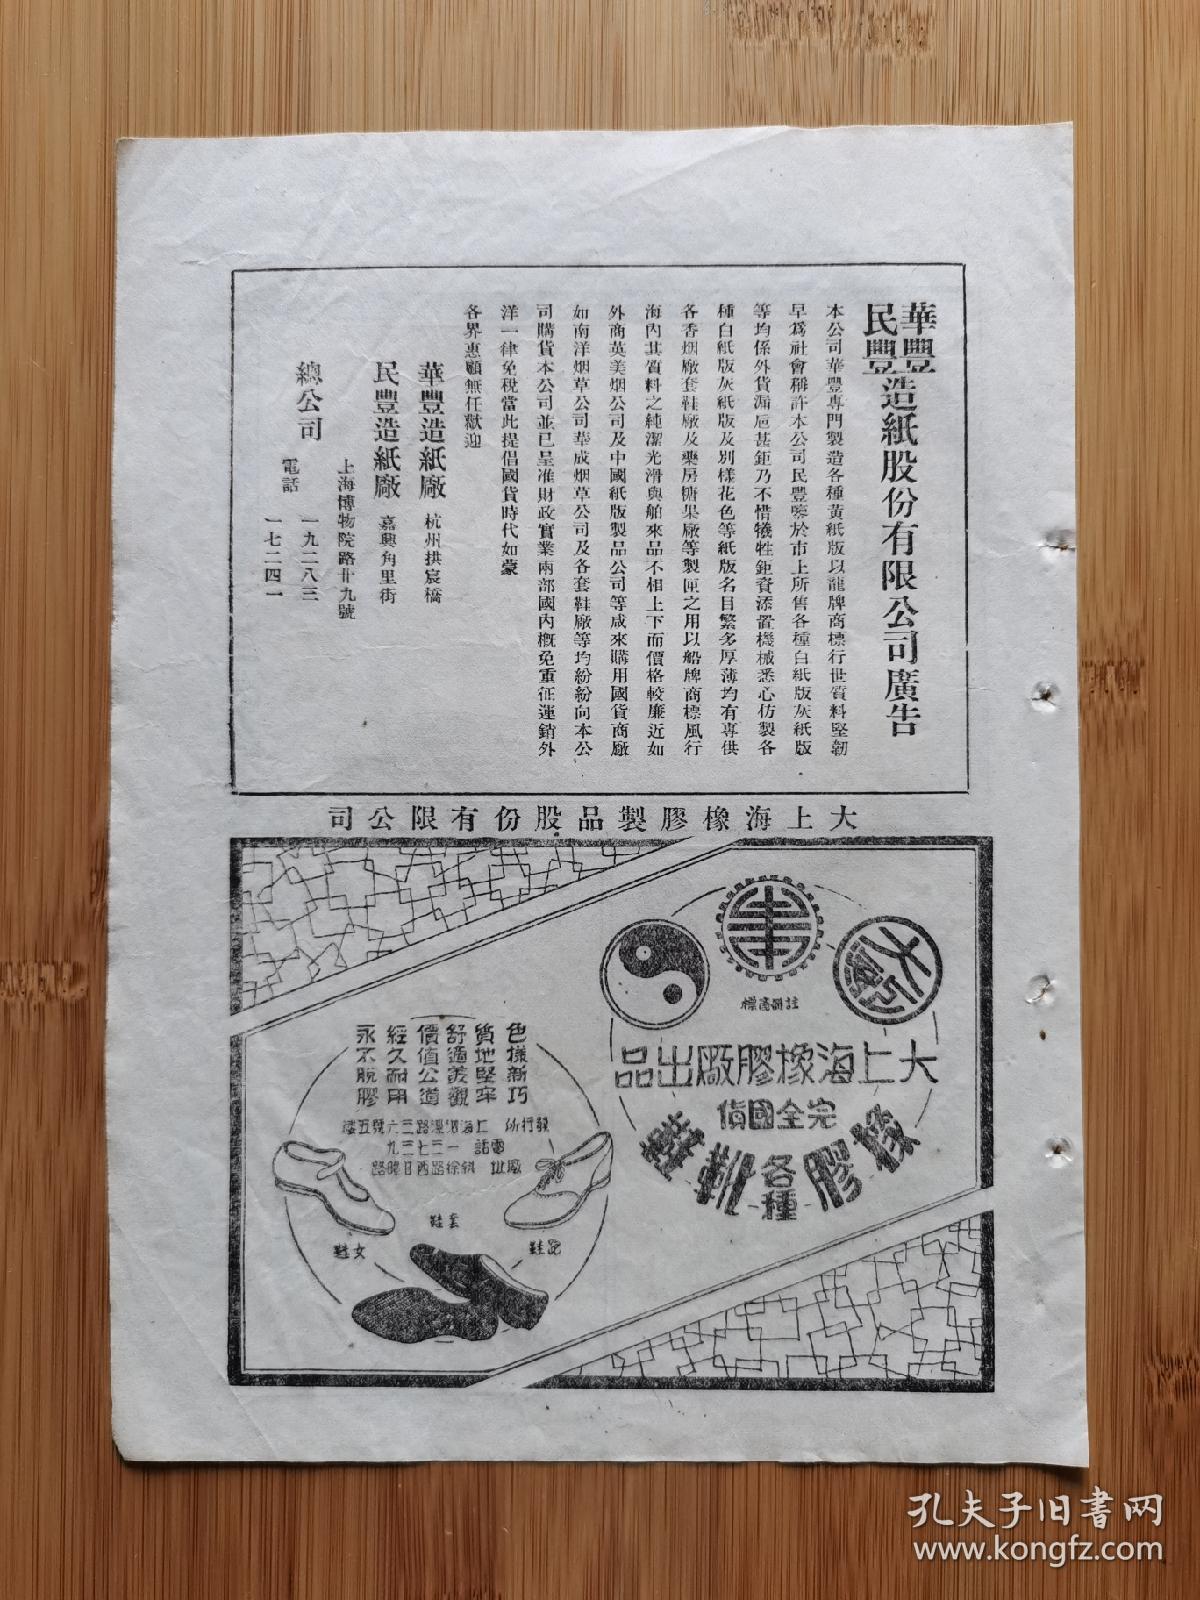 華豐
民豐
造紙股份有限公司廣告
本公司華豐專門製造各種黃紙版以龍牌商標行世質料堅韌
早爲社會稱許本公司民豐鑒於市上所售各種白紙版灰紙版
等均係外貨漏巵甚鉅乃不惜犧牲鉅資添置機械悉心仿製各
種白紙版灰紙版及別樣花色等紙版名目繁多厚薄均有專供
各香烟廠套鞋廠及藥房糖果廠等製匣之用以船牌商標風行
海內其質料之純潔光滑與舶來品不相上下而價格較廉近如
外商英美烟公司及中國紙版製品公司等咸來購用國貨商廠
如南洋烟草公司華成烟草公司及各套鞋廠等均紛紛向本公
司購貨本公司並已呈准財政實業兩部國內槪免重征運銷外
洋一律免稅當此提倡國貨時代如蒙
各界惠顧無任歡迎
華豐造紙廠 杭州拱宸橋
民豐造紙廠 嘉興角里街
總公司
上海博物院路廿九號
電話 一九二八三
一七二四一
大上海橡膠製品股份有限公司
註冊商標
大上海橡膠廠出品
完全國貨
各種
橡膠
鞋靴
色樣新巧
質地堅牢
舒適美觀
價值公道
經久耐用
永不脫膠
發行所 上海泗涇路三六號五樓
電話 一三七三九
廠址 斜徐路西日暉路
跑鞋
套鞋
女鞋
孔夫子旧书网
www.kongfz.com